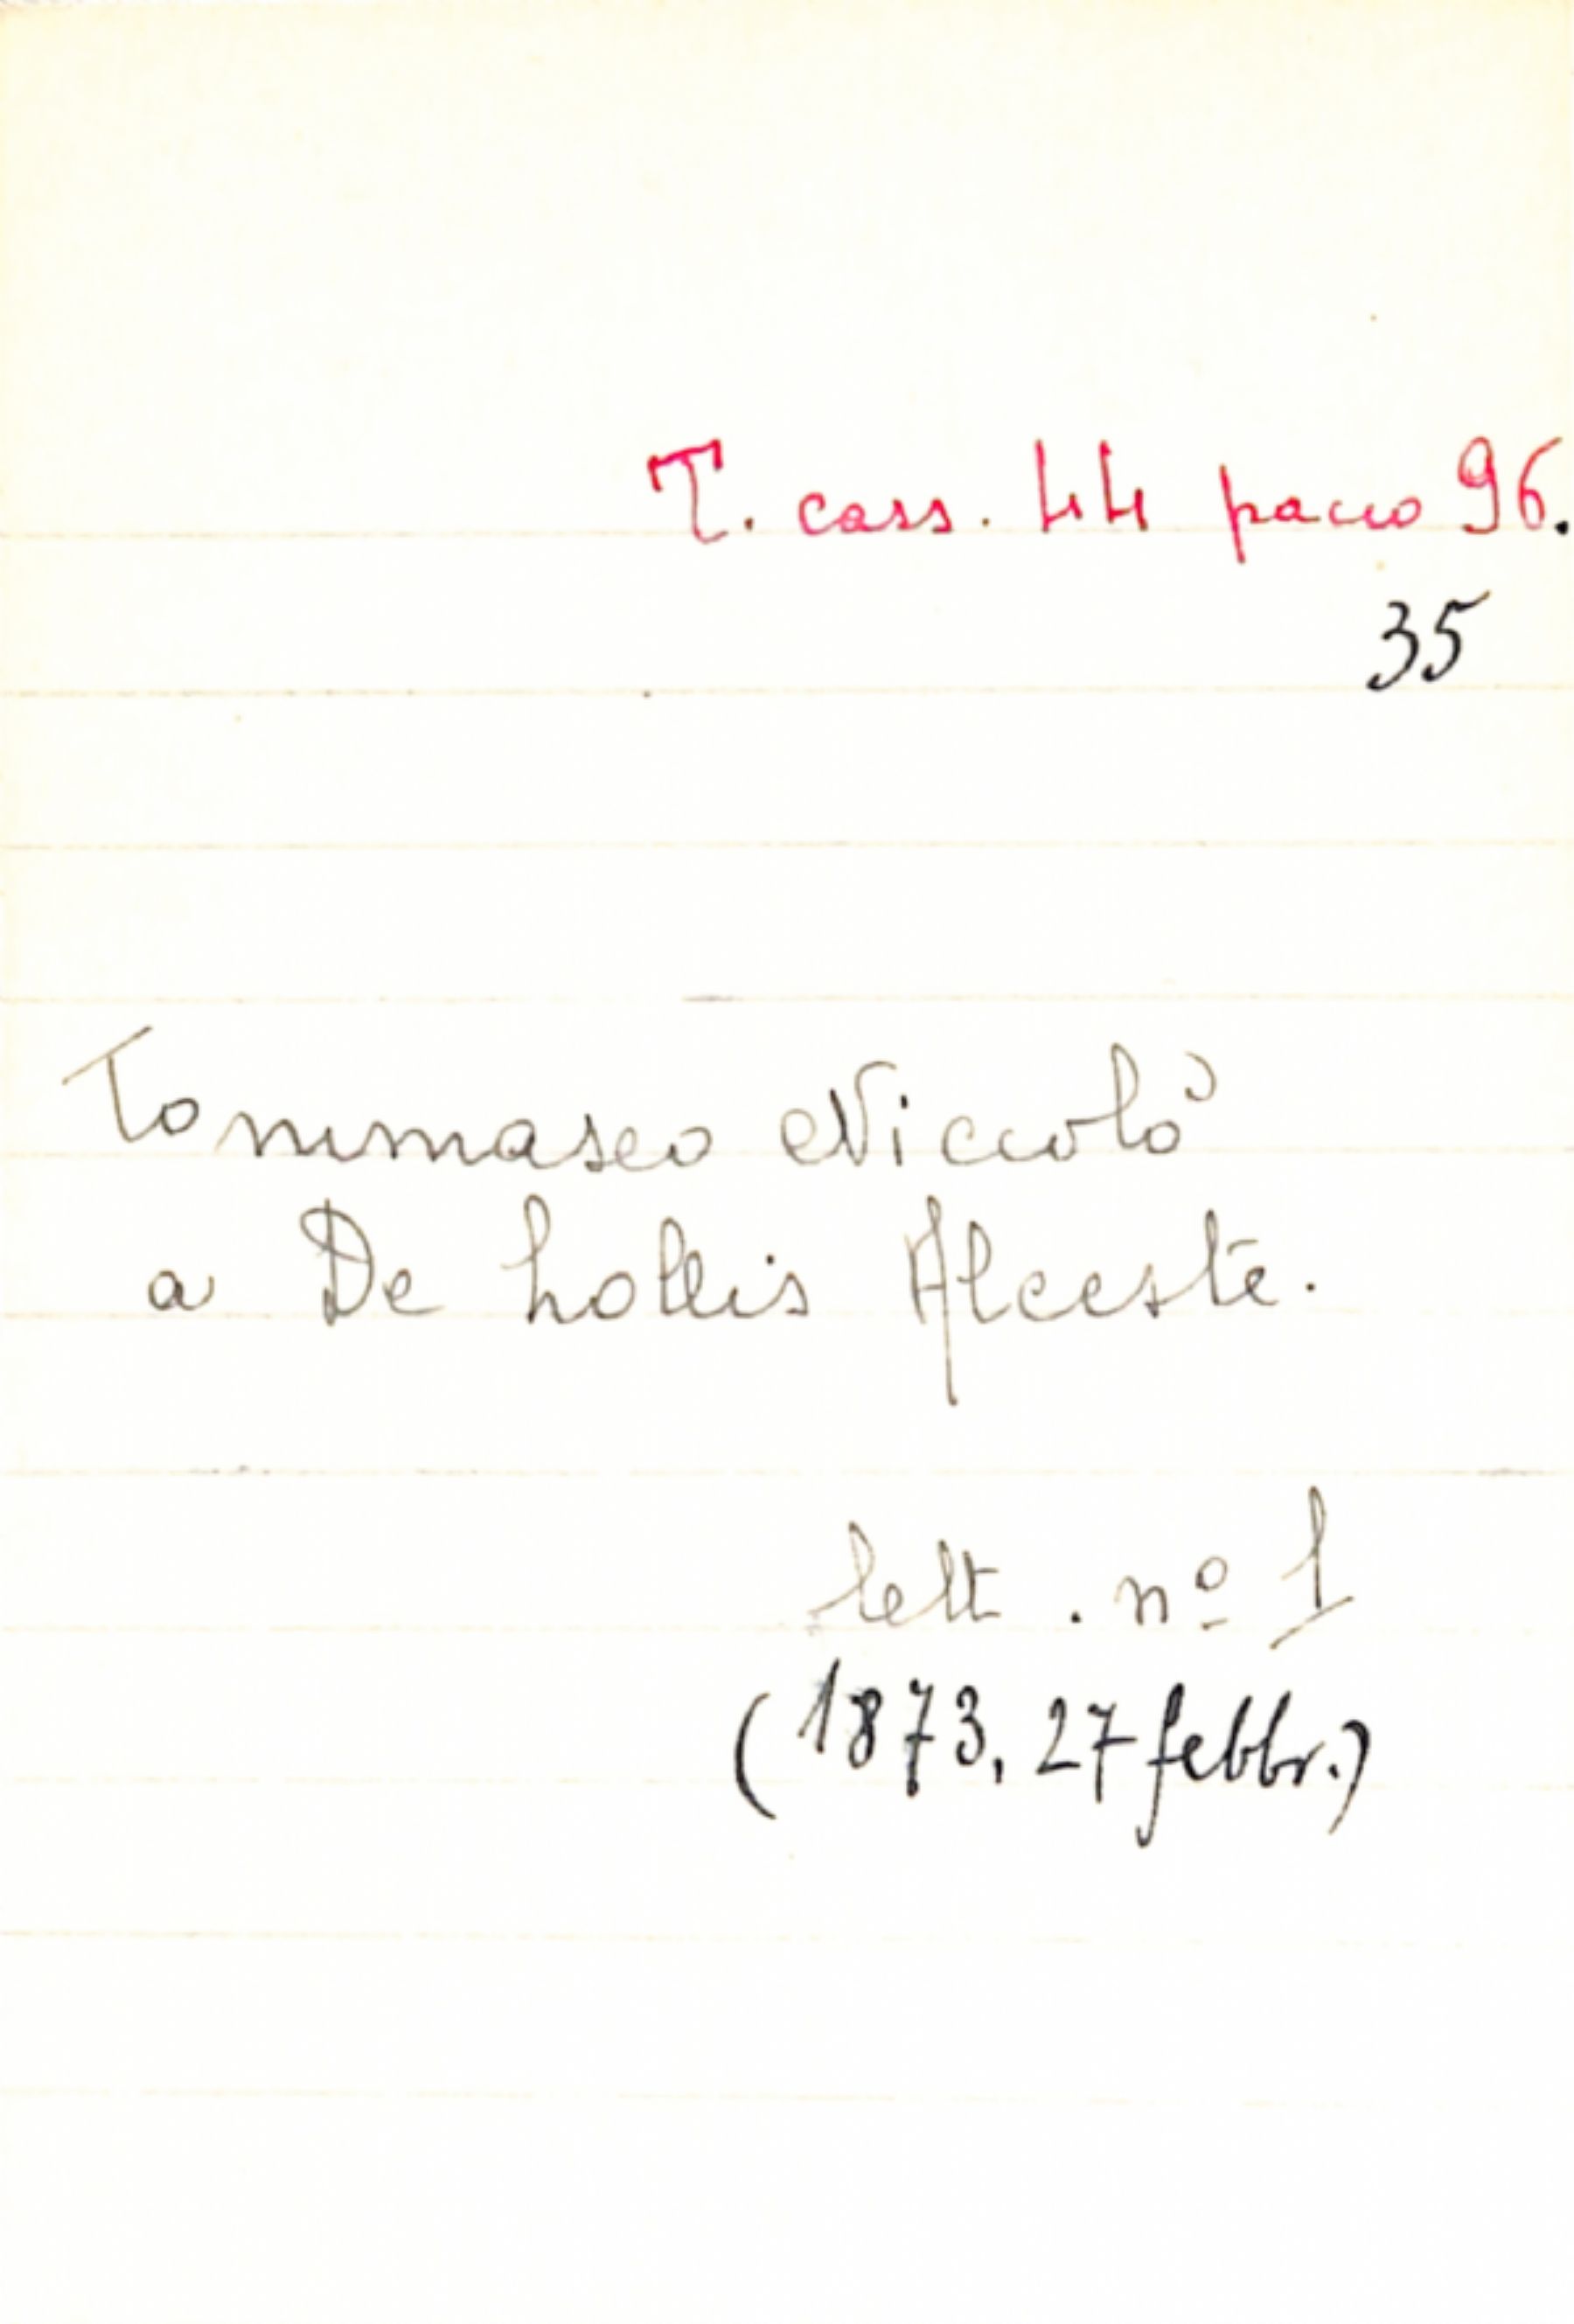 T. cass. 44 pacco 96.
35
Tommaseo Niccolò
a De Lollis Alceste.
lett. nº 1
(1873, 27 febbr.)